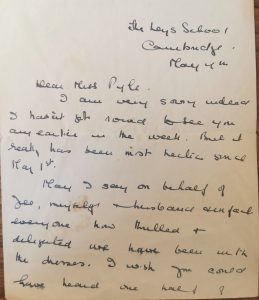 The Leys School
Cambridge.
May 4th
Dear Miss Pyke.
I am very sorry indeed
I hasn't got round to see you
any earlier in the week. But it
really has been most hectic since
May 1st.
May I say on behalf of
myself & husband & in fact
everyone how thrilled &
delighted we have been with
the dresses. I wish you could
have heard one half of